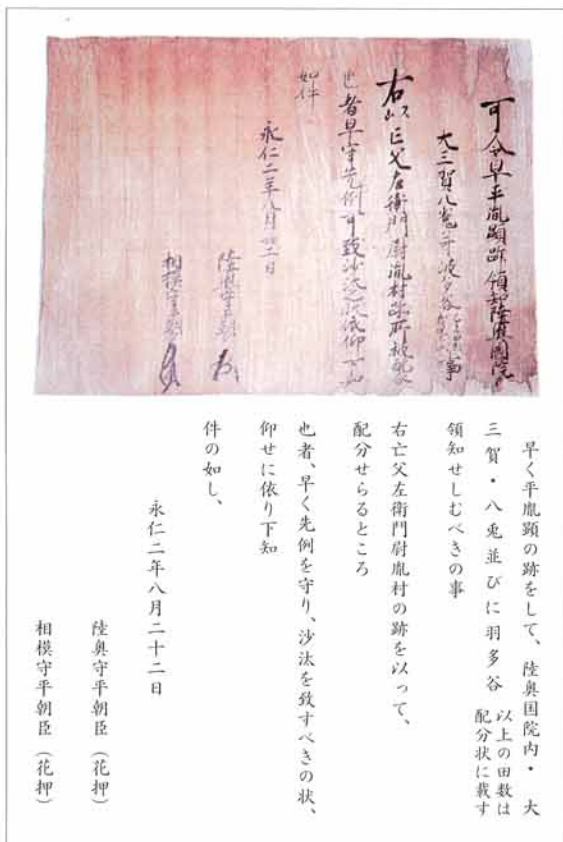 可令早平胤顕跡領知陸奥国院内
大三賀八兎并波多谷 事
右以亡父左衛門尉胤村跡所被配分
也者早守先例可致沙汰之状依仰下知
如件
永仁二年八月廿二日
陸奥守平朝臣
相模守平朝臣
早く平胤顕の跡をして、陸奥国院内・大
三賀・八兎並びに羽多谷 以上の田数は
配分状に載す
領知せしむべきの事
右亡父左衛門尉胤村の跡を以って、
配分せらるところ
也者、早く先例を守り、沙汰を致すべきの状、
仰せに依り下知
件の如し、
永仁二年八月二十二日
陸奥守平朝臣（花押）
相模守平朝臣（花押）